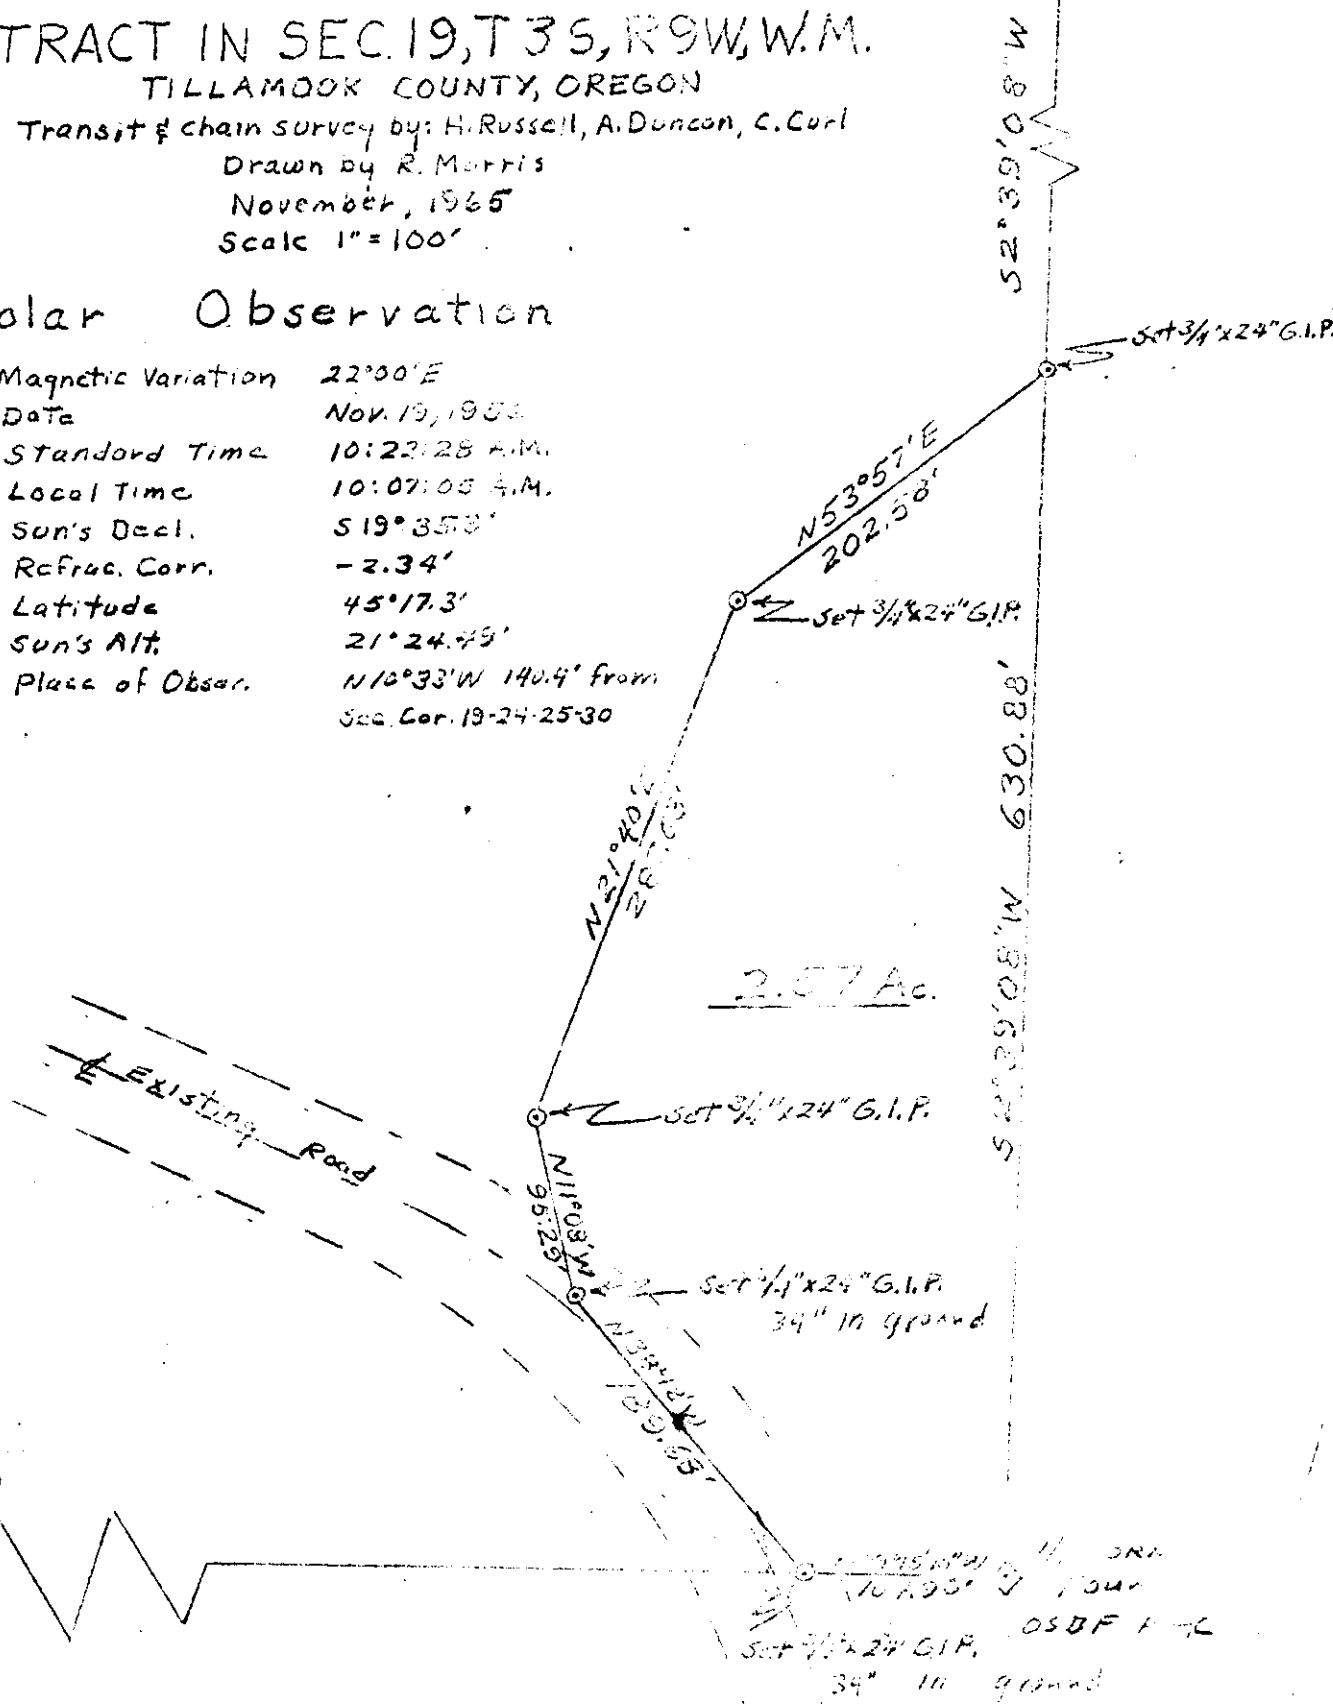 TRACT IN SEC. 19, T 3 S, R 9 W, W.M.
TILLAMOOK COUNTY, OREGON
Transit & chain survey by: H. Russell, A. Duncan, C. Curl
Drawn by R. Morris
November, 1965
Scale 1" = 100'
olar Observation
Magnetic Variation 22°00'E
Date Nov. 19,
Standard Time 10:22:28 A.M.
Local Time A.M.
Sun's Decl. S 19°
Refrac. Corr. -2.34'
Latitude 45°17.3'
Sun's Alt. 21°24.49'
Place of Obser. N10°33'W 140.4' from
Sec. Cor. 19-24-25-30
S2°39'08"W
Set 3/4"x24" G.I.P.
N53°57'E
202.58'
Set 3/4"x24" G.I.P.
630.88'
S2°39'08"W
N21°40'E
Ac.
℄ Existing Road
Set 3/4"x24" G.I.P.
N11°08'W
Set 3/4"x24" G.I.P.
34" in ground
OSBF
Set 3/4"x24" G.I.P.
34" in ground